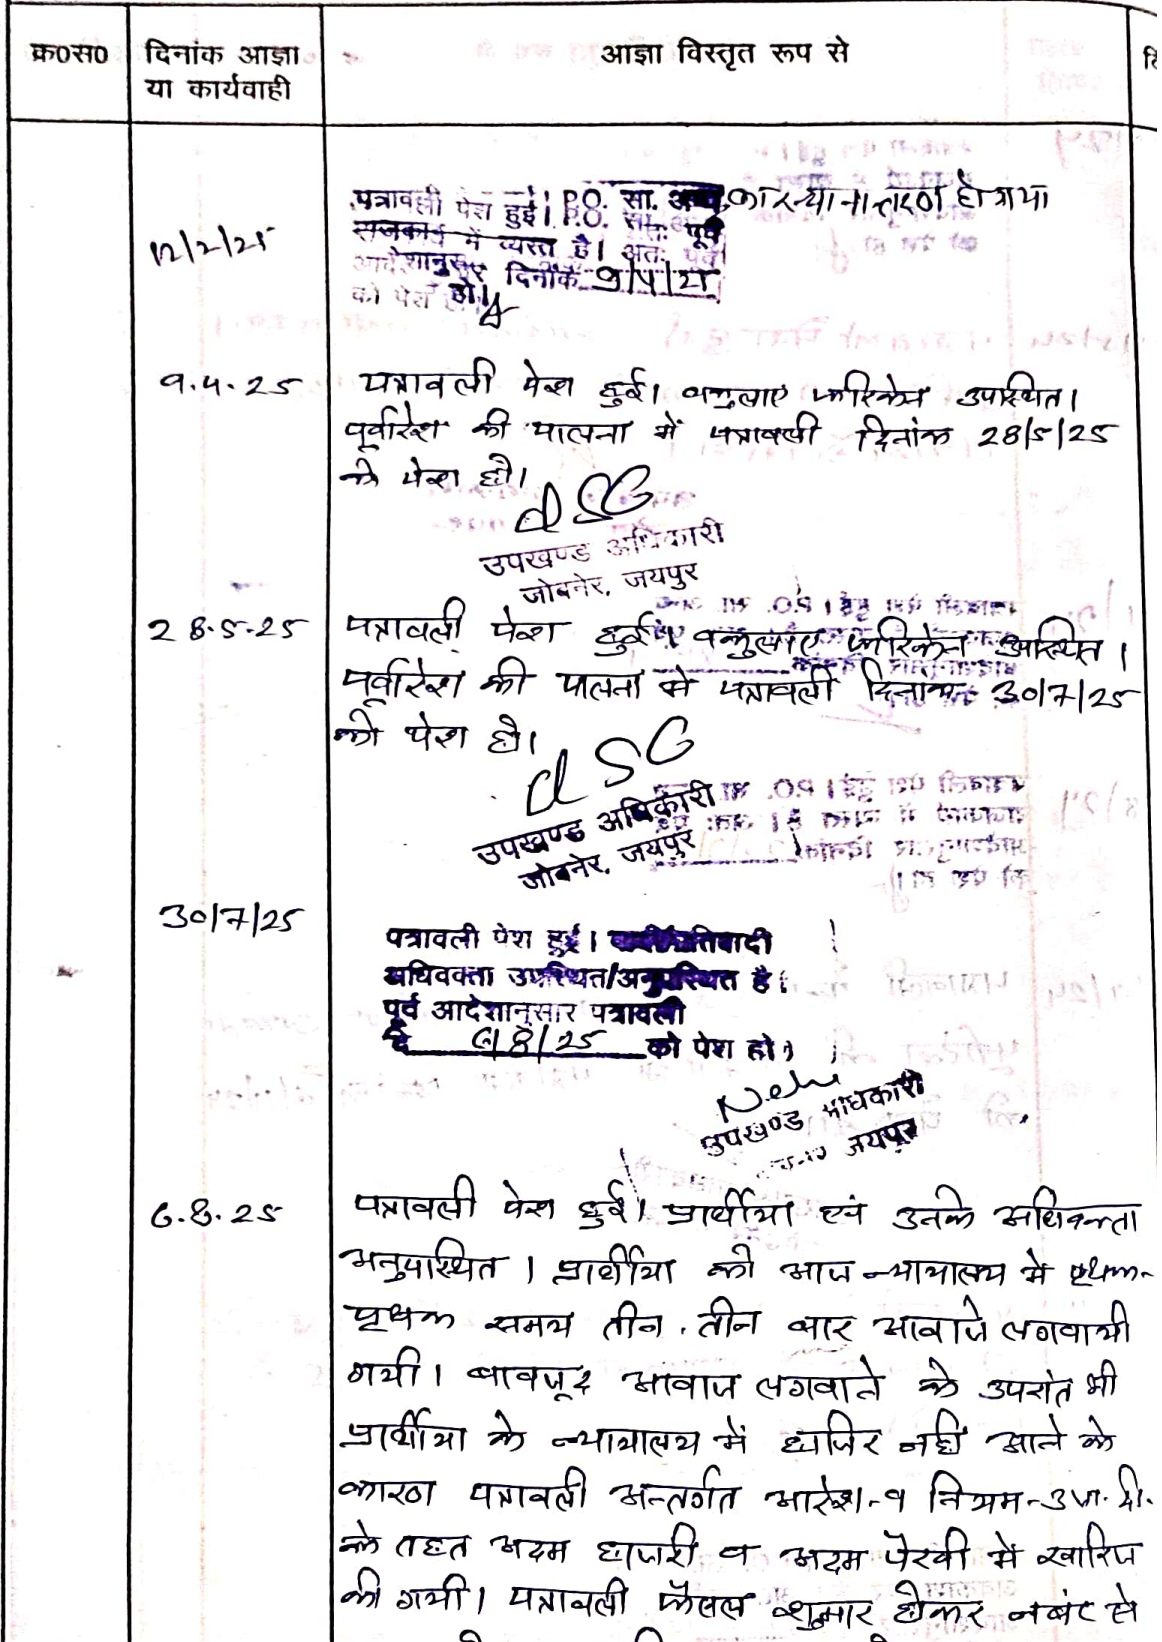 क्र०स०
दिनांक आज्ञा
या कार्यवाही
आज्ञा विस्तृत रूप से
12/2/25
पत्रावली पेश हुई। P.O. सा. का स्थानान्तरण हो गया
राजकार्य में व्यस्त है। अतः पूर्व
आदेशानुसार दिनांक 9/4/25
को पेश हो।
9.4.25
पत्रावली पेश हुई। वकुलाए फरिकेन उपस्थित।
पूर्वादेश की पालना में पत्रावली दिनांक 28/5/25
को पेश हो।
उपखण्ड अधिकारी
जोबनेर, जयपुर
28.5.25
पत्रावली पेश हुई। वकुलाए फरिकेन उपस्थित।
पूर्वादेश की पालना में पत्रावली दिनांक 30/7/25
को पेश हो।
उपखण्ड अधिकारी
जोबनेर, जयपुर
30/7/25
पत्रावली पेश हुई। प्रतिवादी
अधिवक्ता उपस्थित/अनुपस्थित है।
पूर्व आदेशानुसार पत्रावली
दि 6/8/25 को पेश हो।
उपखण्ड अधिकारी
जयपुर
6.8.25
पत्रावली पेश हुई। प्रार्थीया एवं उनके अधिवक्ता
अनुपस्थित। प्रार्थीया को आज न्यायालय में पृथक-
पृथक समय तीन, तीन बार आवाजे लगवायी
गयी। बावजूद आवाज लगवाने के उपरांत भी
प्रार्थीया के न्यायालय में हाजिर नहीं आने के
कारण पत्रावली अन्तर्गत आदेश-9 नियम-3 जा.दी.
के तहत अदम हाजरी व अदम पैरवी में खारिज
की गयी। पत्रावली फैसल शुमार होकर नबंर से